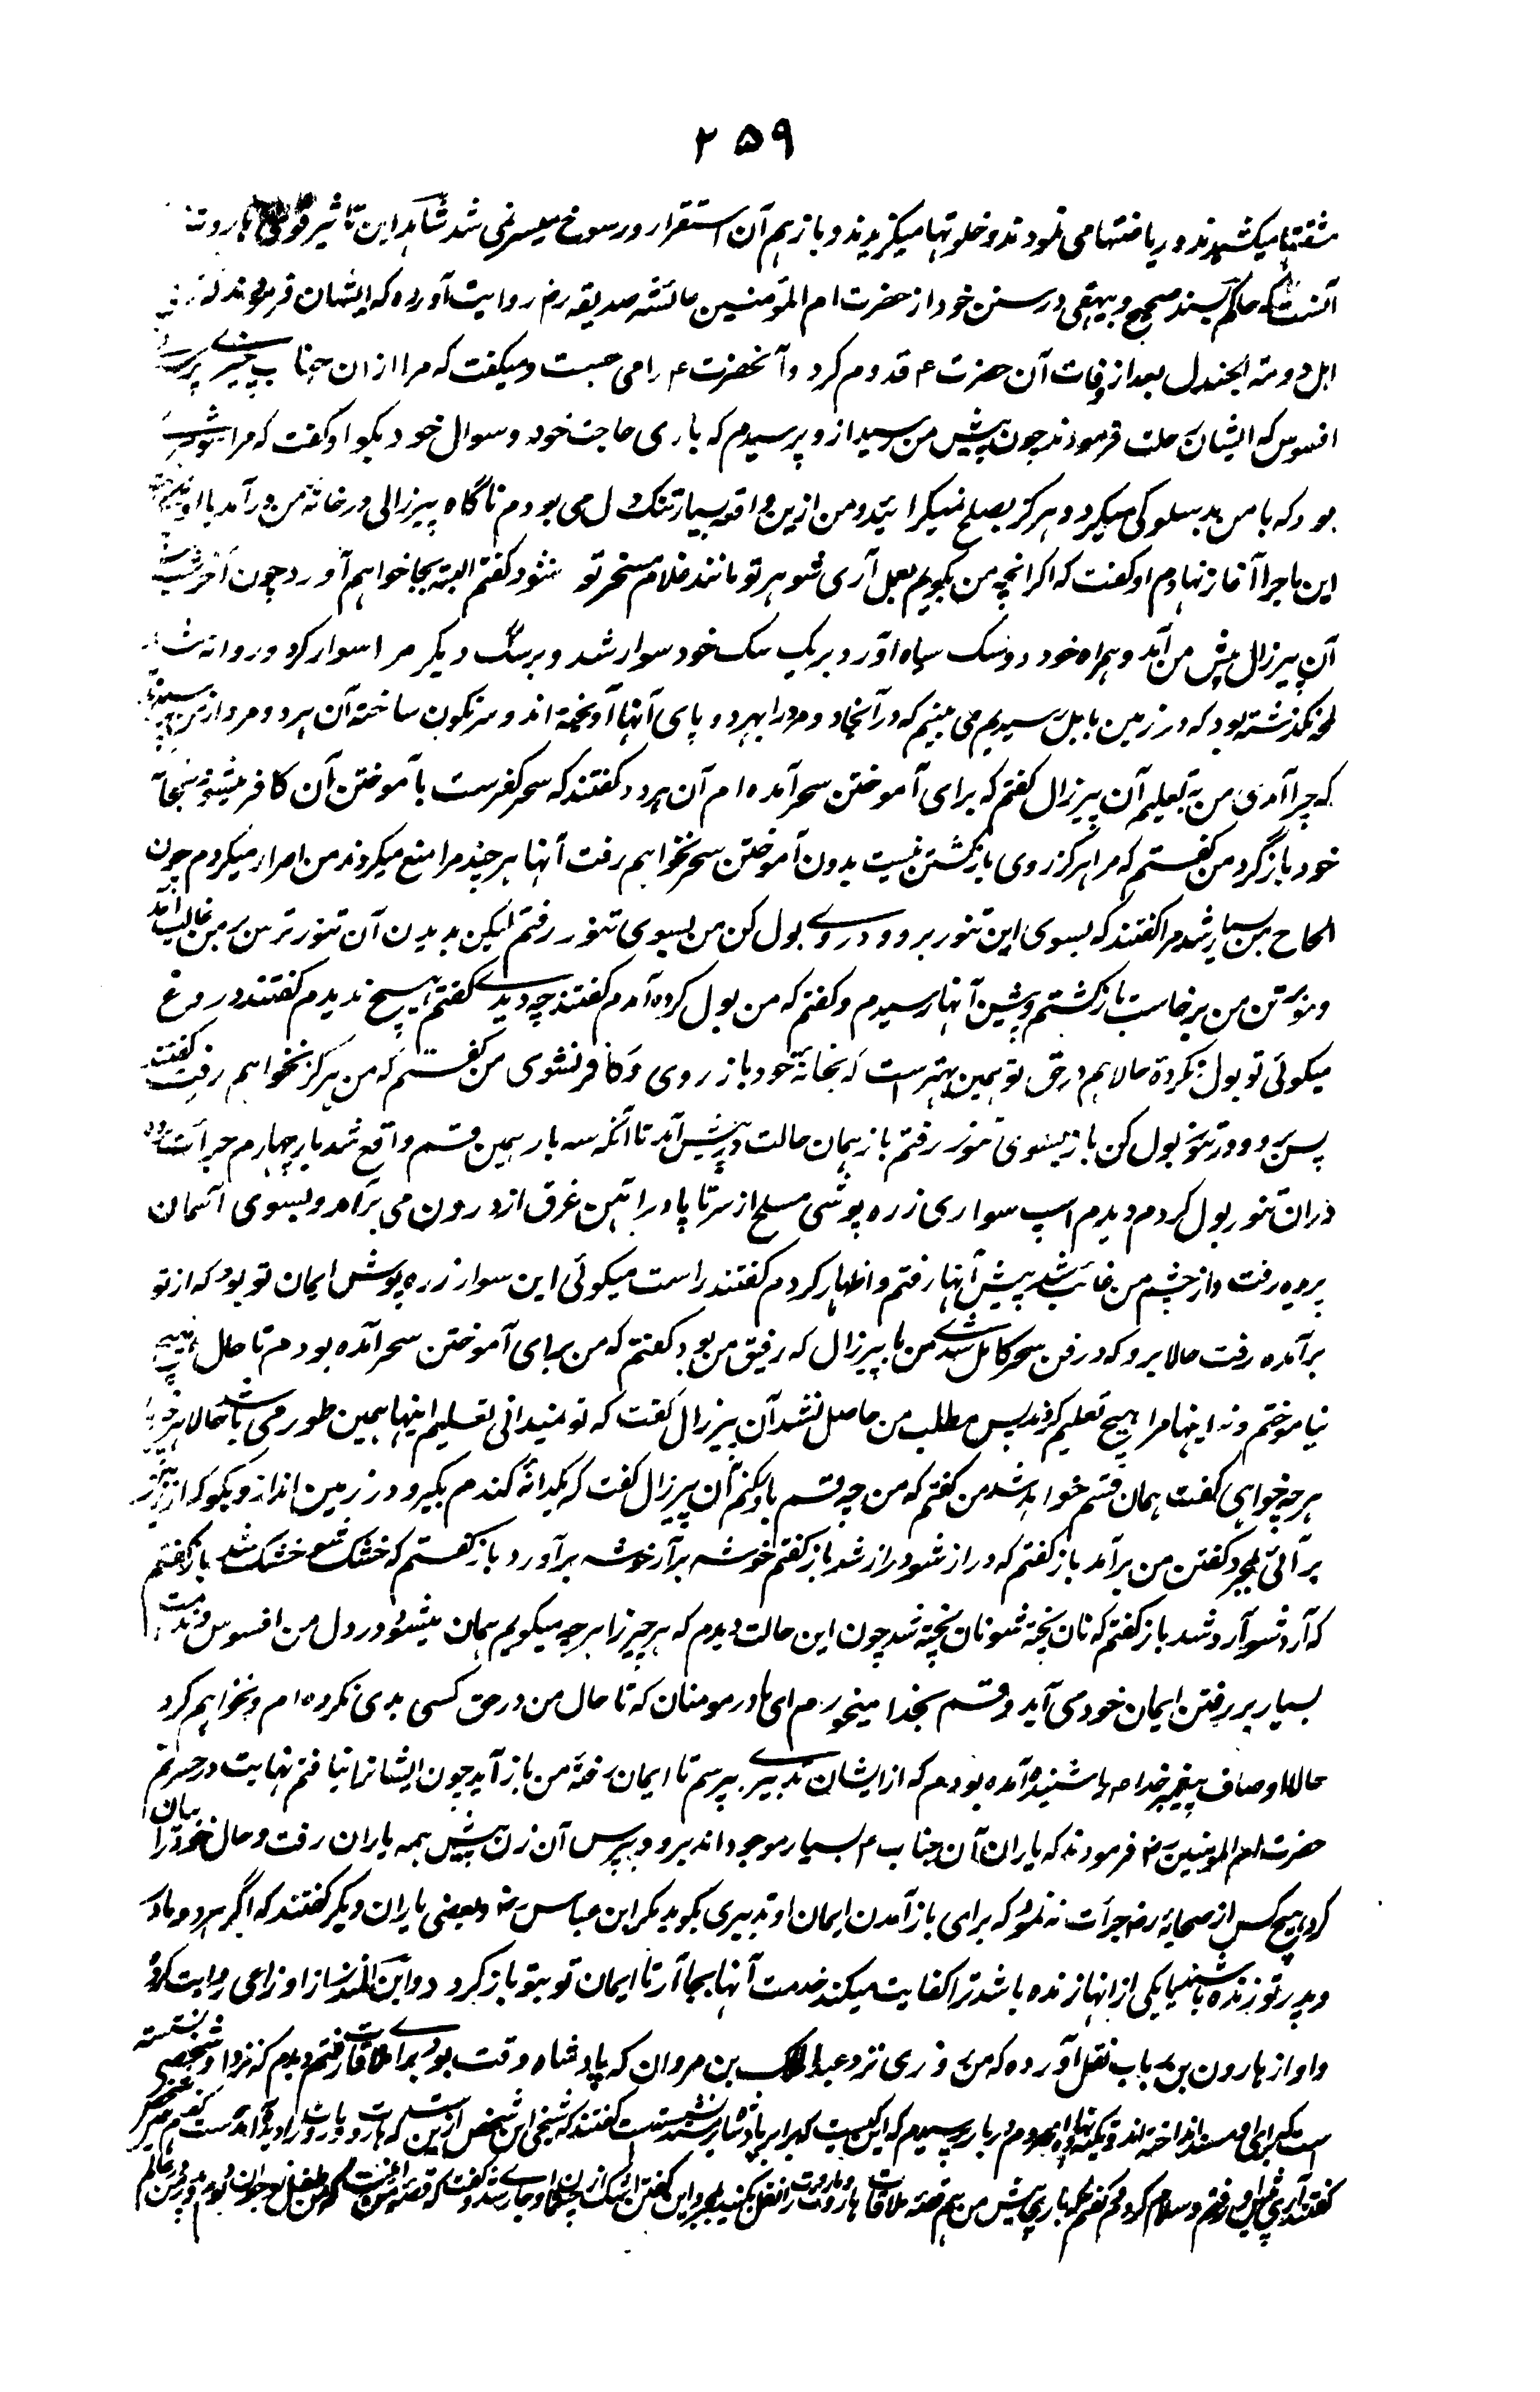 ۲۵۹
مشقتها میکشیدند و ریاضتها می نمودند و خلوتها میگزیدند و باز هم آن استقرار و رسوخ میسر نمی شد شاهد این تاثیر قوی هاروت
آنست که حاکم بسند صحیح و بیهقی در سنن خود از حضرت ام المومنین عائشه صدیقه رض روایت آورده که ایشان فرمودند که زنی
اهل دومة الجندل بعد از وفات آن حضرت ص قدوم کرد و آنحضرت ص را می جست و میگفت که مرا از ان جناب چیزے
افسوس که ایشان رحلت فرمودند چون پیش من رسید از و پرسیدم که باری حاجت خود و سوال خود بگو او گفت که مرا شوهرے
بود که با من بد سلوکی میکرد و هرگز بصلح نمیگرائید و من ازین واقعه بسیار تنگ دل می بودم ناگاه پیرزالی در خانه من در آمد با او
این ماجرا آغاز نهادم او گفت که اگر انچه من بگویم بعمل آری شوهر تو مانند غلام مسخر تو شود گفتم البته بجا خواهم آورد چون آخر شب
آن پیرزال پیش من آمد و همراه خود دو سگ سیاه آورد بر یک سگ خود سوار شد و بر سگ دیگر مرا سوار کرد و روانه شد
نگذشته بود که در زمین بابل رسیدیم می بینم که در آنجا دو مرد را بهر دو پای آنها آویخته اند و سرنگون ساخته آن هر دو مرد از من پرسیدند
که چرا آمدی من به تعلیم آن پیرزال گفتم که برای آموختن سحر آمده ام آن هر دو گفتند که سحر کفرست با آموختن آن کافر میشوی بخانه
خود باز گرد من گفتم که مرا هرگز روی بازگشتن نیست بدون آموختن سحر نخواهم رفت آنها هر چند مرا منع میکردند من اصرار میکردم چون
الحاح من بسیار شد مرا گفتند که بسوی این تنور برو و در وے بول کن من بسوی تنور رفتم لیکن بدیدن آن تنور ترس بر من غالب آمد
و مو بر تن من برخاست باز گشتم و پیش آنها رسیدم و گفتم که من بول کرده آمدم گفتند چه دیدے گفتم هیچ ندیدم گفتند دروغ
میگوئی تو بول نکردهٔ حالا هم در حق تو همین بهترست که بخانهٔ خود باز روی و کافر نشوی من گفتم که من هرگز نخواهم رفت گفتند
پس برو و در تنور بول کن باز بسوی تنور رفتم باز همان حالت در پیش آمد تا آنکه سه بار همین قسم واقع شد بار چهارم جرأت
دران تنور بول کردم دیدم اسپ سواری زره پوشی مسلح از سر تا پا در آهن غرق از درون می برآمد و بسوی آسمان
پریده رفت و از چشم من غائب شد پیش آنها رفتم و اظهار کردم گفتند راست میگوئی این سوار زره پوش ایمان تو بود که از تو
برآمده رفت حالا برو که در فن سحر کامل شدے من با پیرزال که رفیق من بود گفتم که من برای آموختن سحر آمده بودم تا حال هیچ
نیاموختم و نه اینها مرا هیچ تعلیم کردند پس مطلب من حاصل نشد آن پیرزال گفت که تو نمیدانی تعلیم اینها بهمین طور می باشد حالا
هر چه خواهی گفت همان قسم خواهد شد من گفتم که من چه قسم باور کنم آن پیرزال گفت که یکدانهٔ گندم بگیر و در زمین انداز و بگو که از زمین
برآئی بمجرد گفتن من برآمد باز گفتم که دراز شو دراز شد باز گفتم خوشه برآر خوشه برآورد باز گفتم که خشک شو خشک شد باز گفتم
که آرد شو آرد شد باز گفتم که نان پخته شو نان پخته شد چون این حالت دیدم که هر چیز را هر چه میگویم همان میشود در دل من افسوس و ندامت
بسیار بر رفتن ایمان خود می آید و قسم بخدا میخورم ای مادر مومنان که تا حال من در حق کسی بدی نکرده ام و نخواهم کرد
حالا اوصاف پیغمبر خدا ص را شنیده آمده بودم که از ایشان تدبیرے بپرسم تا ایمان رفتهٔ من باز آید چون ایشانرا نیافتم نهایت در حسرتم
حضرت ام المومنین رض فرمودند که یاران آن جناب ص بسیار موجود اند برو و بپرس آن زن پیش همه یاران رفت و حال خود را بیان
کرد هیچ کس از صحابهٔ رض جرأت نه نمود که برای باز آمدن ایمان او تدبیری بگوید مگر ابن عباس رض و بعضی یاران دیگر گفتند که اگر هر دو مادر
و پدر تو زنده باشند یا یکی از انها زنده باشد ترا کفایت میکند خدمت آنها بجا آر تا ایمان تو بتو باز گردد و ابن المنذر از اوزاعی روایت کرده
و او از هارون بن رباب نقل آورده که من روزی نزد عبدالملک بن مروان که پادشاه وقت بود براے ملاقات رفتم دیدم که نزد او شخصی نشسته